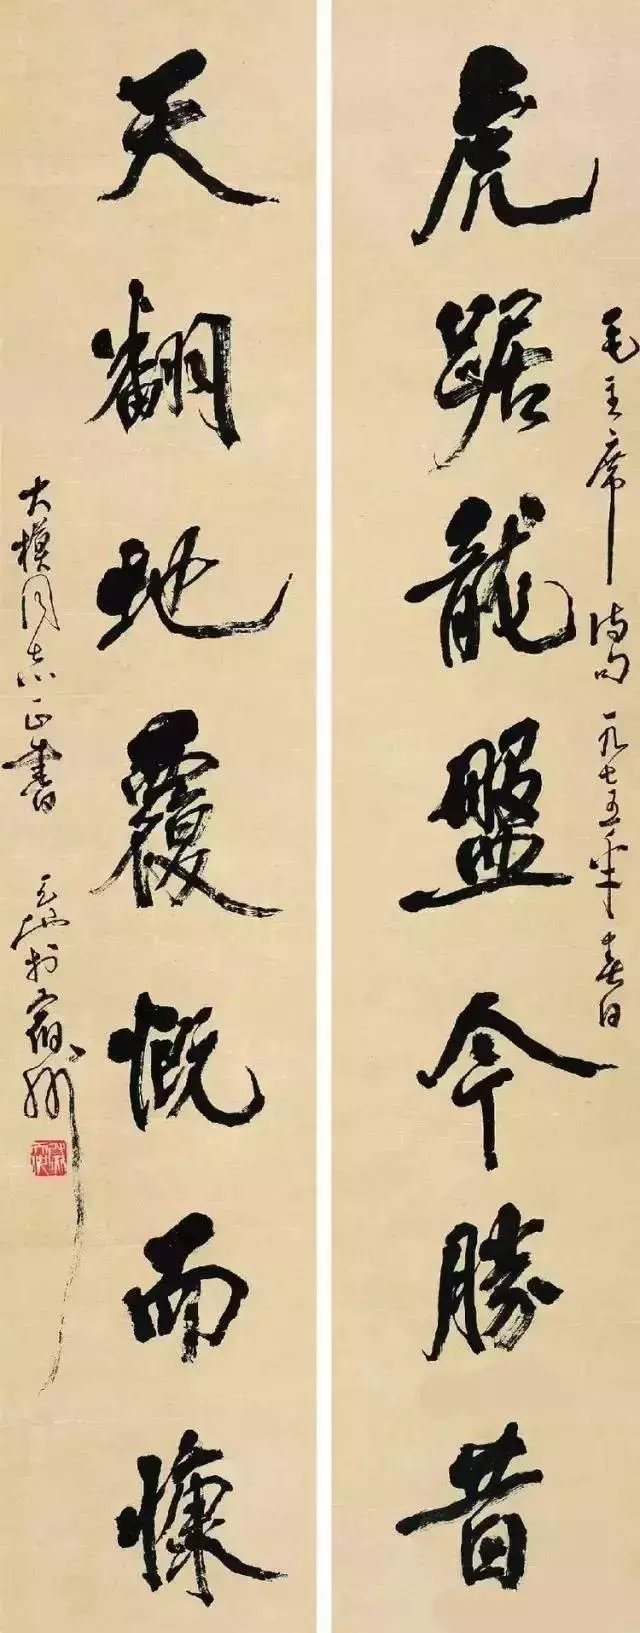 虎踞龍盤今勝昔
毛主席詩句 一九七五年春日
天翻地覆慨而慷
大模同志正書
於宿州